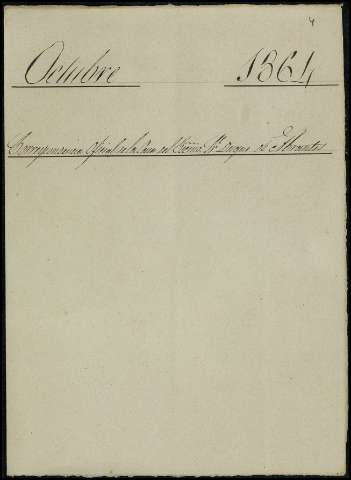 4
Octubre 1864
Correspondencia Oficial de la Casa del Excmo. Sr. Duque de Abrantes